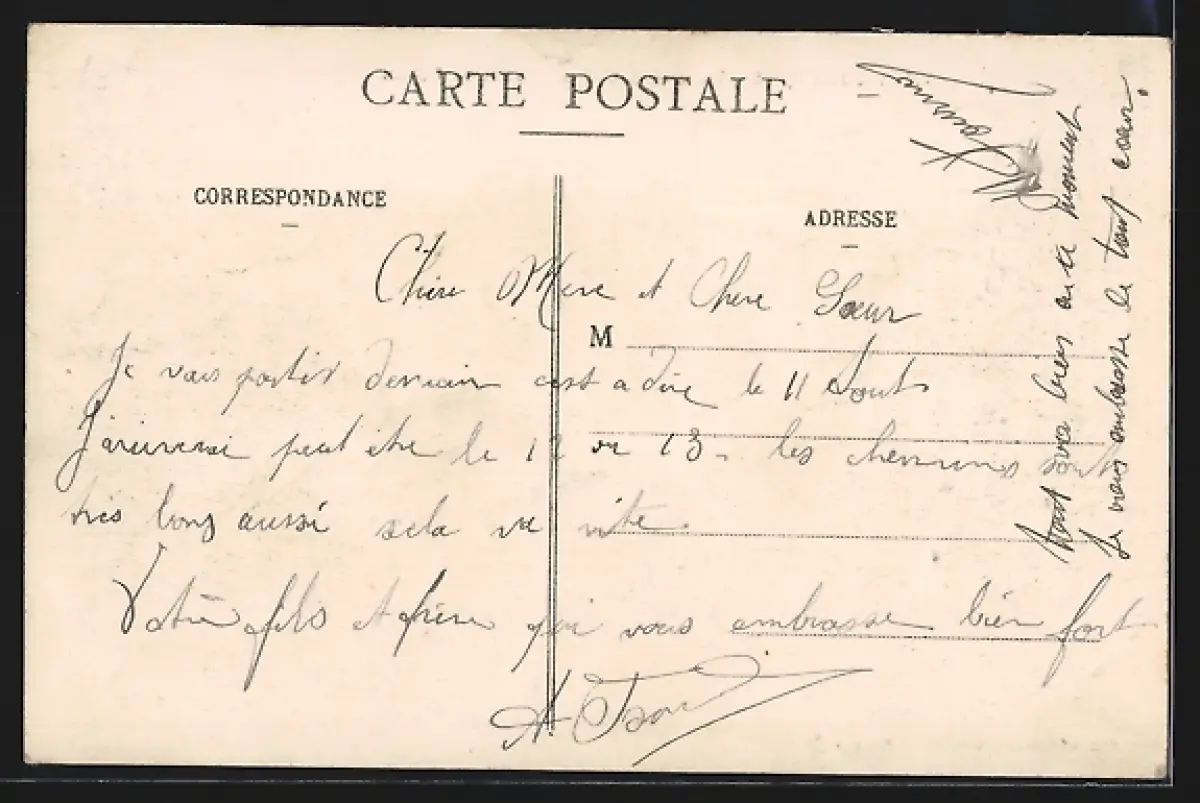 CARTE POSTALE
CORRESPONDANCE
ADRESSE
Chère Mère et Chère Sœur
M
Je vais partir demain cest a dire le 11 Aout
J'arriverai peut être le 12 ou 13. les chemins sont
très long aussi sela va vite
Votre fils et frère qui vous embrasse bien fort
A
tout va bien en ce moment
Je vous embrasse de tout cœur.